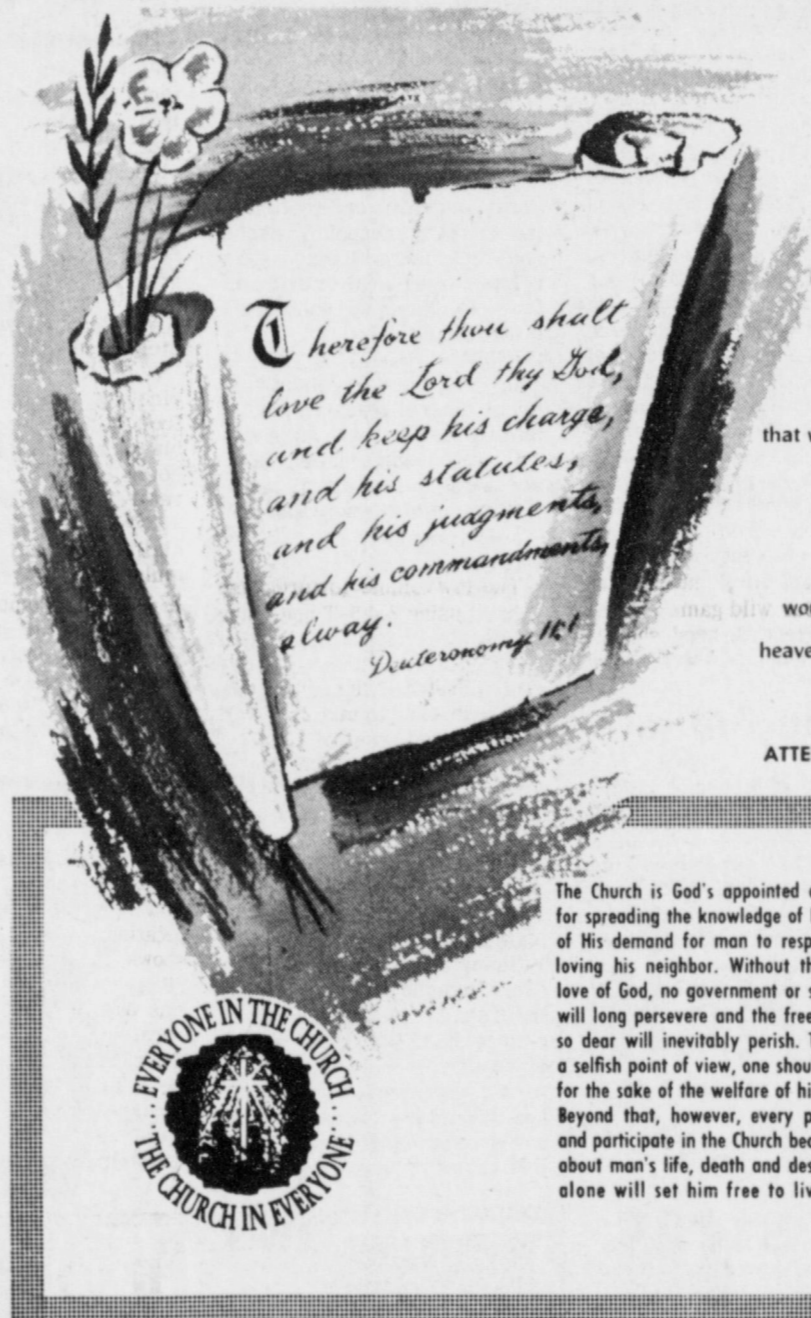 Therefore thou shalt
love the Lord thy God,
and keep his charge,
and his statutes,
and his judgments,
and his commandments,
alway.
Deuteronomy 11:1
that w
wild game
wor
heave
ATTE
The Church is God's appointed
for spreading the knowledge of
of His demand for man to resp
loving his neighbor. Without th
love of God, no government or s
will long persevere and the free
so dear will inevitably perish. T
a selfish point of view, one shou
for the sake of the welfare of hi
Beyond that, however, every p
and participate in the Church bec
about man's life, death and des
alone will set him free to liv
EVERYONE IN THE CHURCH
THE CHURCH IN EVERYONE